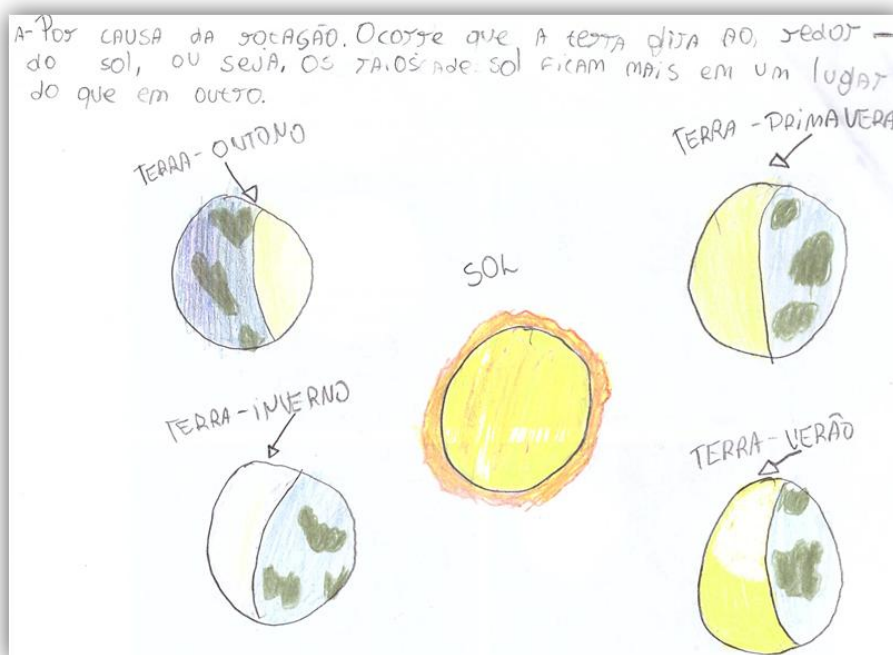 A- Por CAUSA DA ROTAGÃO. Ocorre que A terra gira AO, redor
do sol, OU SEJA, OS raios de sol FICAM MAIS em um lugar
do que em outro.
TERRA - OUTONO
TERRA - PRIMAVERA
SOL
TERRA - INVERNO
TERRA - VERÃO